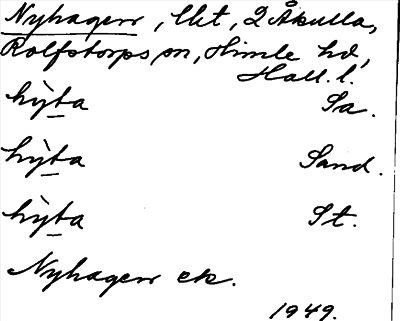 Nyhagen, lht, 2 Åkulla,
Rolfstorps sn, Himle hd,
Hall. l.
hỳta Sa.
hỳta Sand.
hỳta St.
Nyhagen ek.
1949.